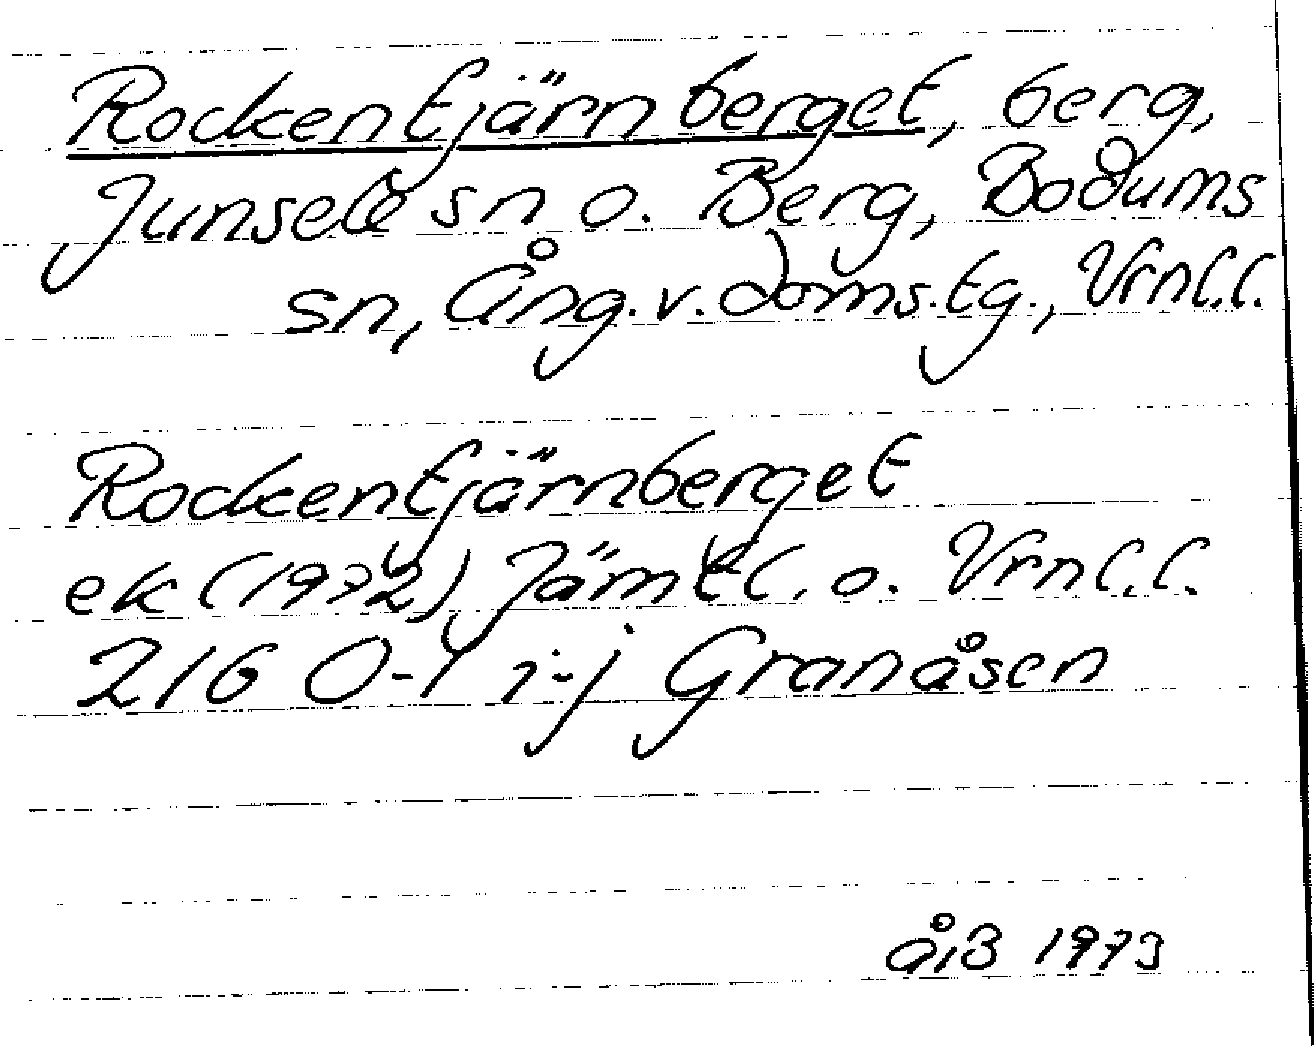 Rockentjärnberget, berg,
Junsele sn o. Berg, Bodums
sn, Ång.v.doms.tg., Vrnl.l.
Rockentjärnberget
ek (1972) Jämtl. o. Vrnl.l.
216 0-1 i-j Granåsen
åiB 1973